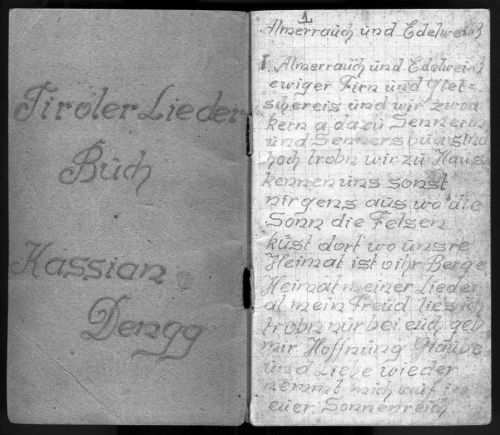 Tiroler Lieder
Büch
Kassian
Dengg
1
Almerraüch und Edelweiß
I. Almerraüch ünd Edelweiß
ewiger Firn und Glet=
schereis ünd wir zwoa
kern a dazü Sennerin
und Senners büa st
hoch trobn wir zü Haüs
kennen üns sonst
nirgens aus wo die
Sonn die Felsen
küst dort wo ünsre
Heimat ist o ihr Berge
Heimat meiner Lieder
al mein Freüd lies ich
trobn nür bei eüch gebt
mir Hoffnüng Glaübe
ünd Liebe wieder
nemmt mich aüf in
eüer Sonnenreich